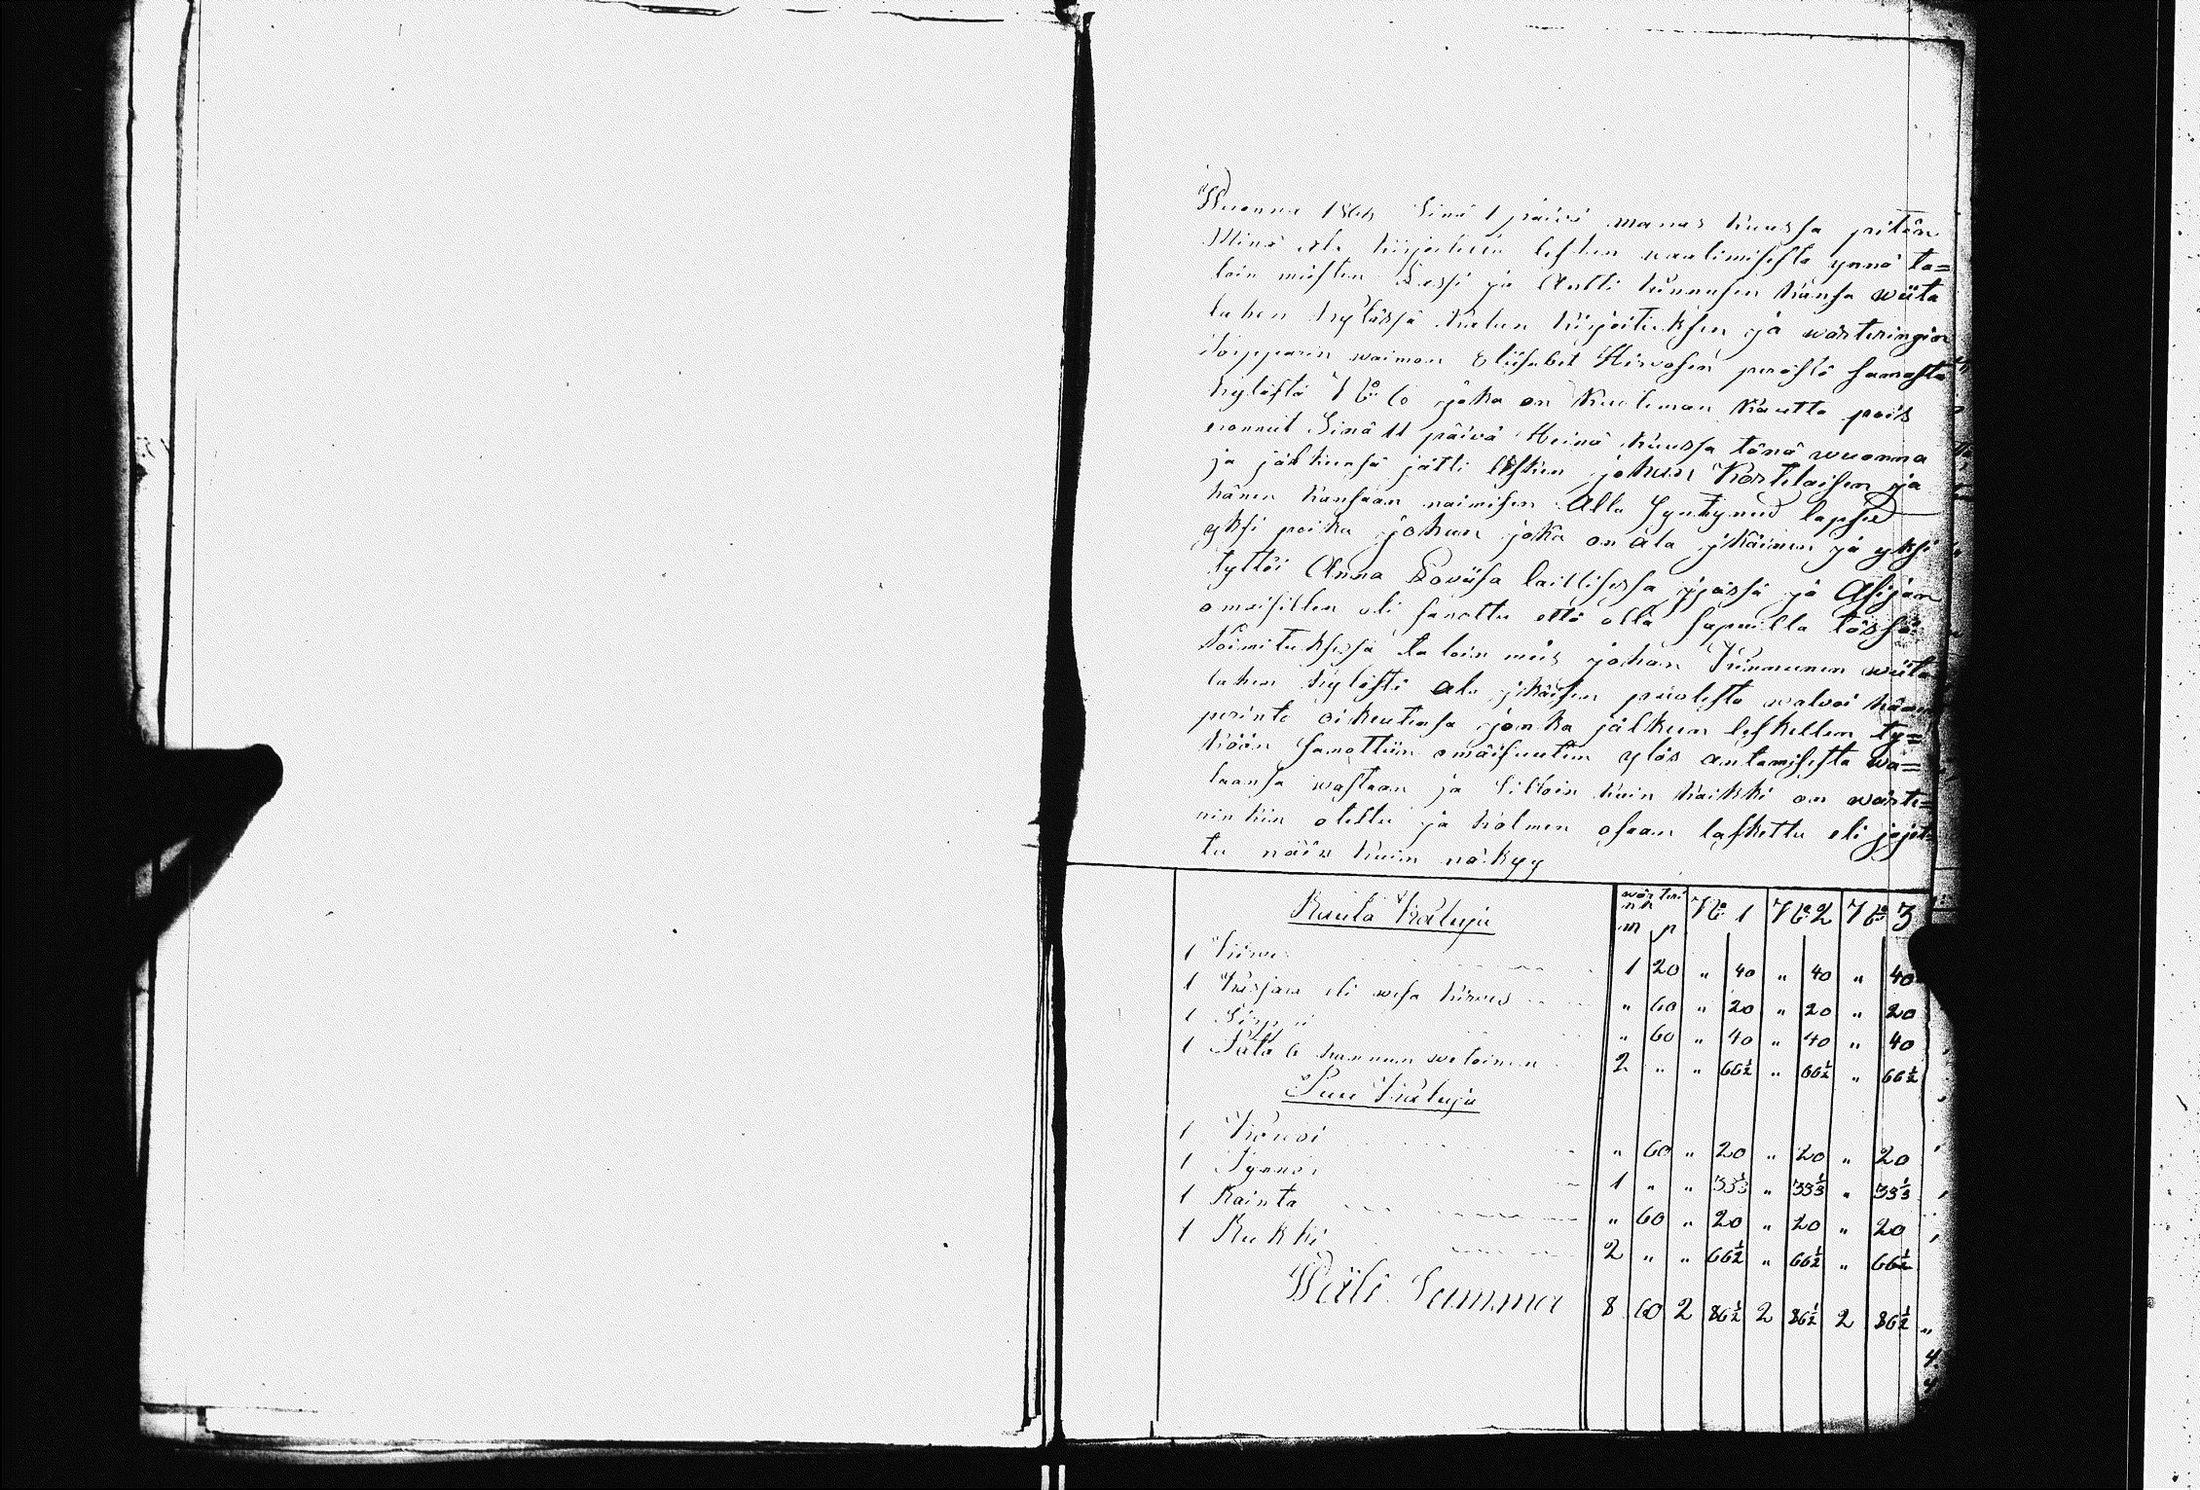 Wuonna 186 Sinä 1 päivä marras kuussa pitän
Minä ala kirjoitettu lesken waatimisesta ynnä ta=
loin miesten Lassi ja Antti Kinnusen kansa wiita
lahen kylässä kalun kirjoituksen ja wärteringin
torpparin waimon Eliisabet Hirvosen perästä samasta
kylästä No 6 joka on kuoleman kautta pois
eronnut Sinä 11 päivä Heinä kuussa tänä wuonna
ja jälkeensä jätti lesken johan Kortelaisen ja
hänen kansaan naimisen Alla Syntynyd lapsed
yksi poika johan joka on ala ijkäinen ja yksi
tyttöi Anna Loviisa laillisessa ijässä ja Asijan
omaisillen oli sanottu että olla sapuilla tässä
toimituksessa taloin mies johan Kinnunen wiita
lahen kylästä ala ijkäisen puolesta walvoi hänen
perintö oikeutensa jonka jälkeen leskellen ty=
köön sanottiin omaisuuten ylös antamisesta wa=
laansa wastaan ja Silloin kuin kaikki on wärte=
rinkiin otettu ja kolmen osaan laskettu eli jajet=
tu näin kuin näkyy
Rauta Kaluja wärteri nk m p No 1 No 2 No 3
1 Kirves 1 20 " 40 " 40 " 40
1 Kirjava eli wesa kirves " 60 " 20 " 20 " 20
1 Sirppi " 60 " 40 " 40 " 40
1 Pata 6 kannun wetoinen 2 " " 66½ " 66½ " 66½
Puu Kaluja
1 Korvoi " 60 " 20 " 20 " 20
1 Tynnöri 1 " " 33⅓ " 33⅓ " 33⅓
1 Rainta " 60 " 20 " 20 " 20
1 Rukki 2 " " 66½ " 66½ " 66½
Wäli Summa 8 60 2 86½ 2 86½ 2 86½